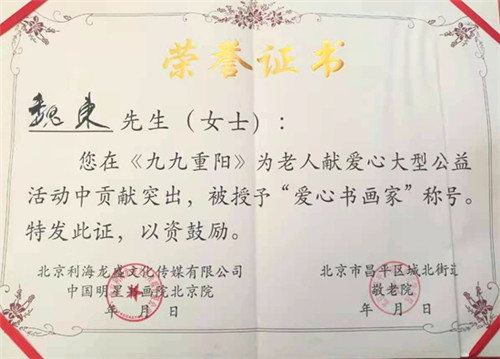 荣誉证书
魏东 先生（女士）：
您在《九九重阳》为老人献爱心大型公益
活动中贡献突出，被授予“爱心书画家”称号。
特发此证，以资鼓励。
北京利海龙盛文化传媒有限公司
中国明星书画院北京院
年 月 日
北京市昌平区城北街
敬老院
年 月 日